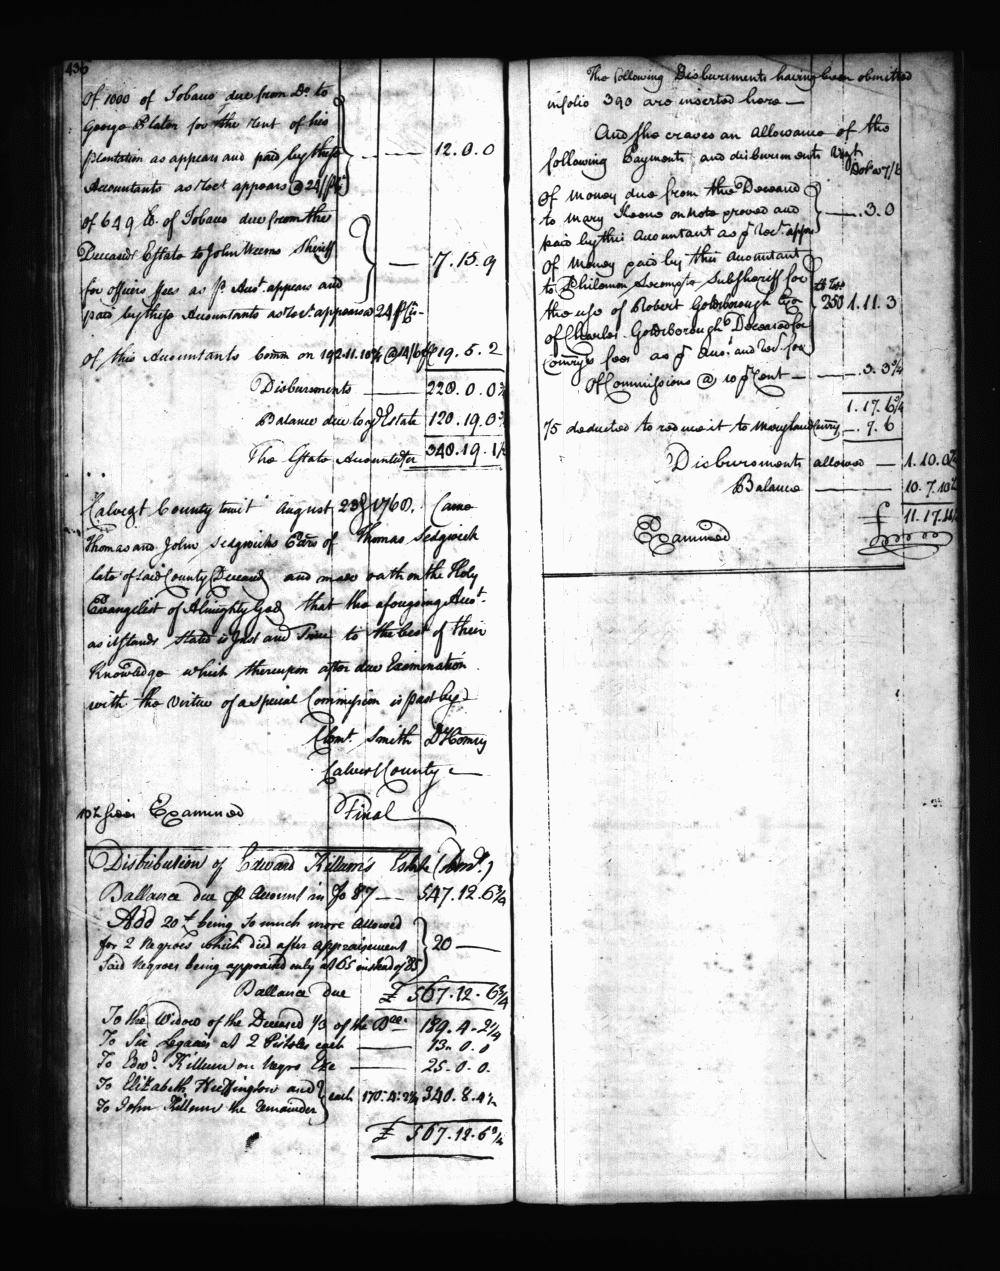 436
Of 1000 of Tobaco due from Do. to
George Plater for the Rent of his
plantation as appears and paid by these 12.0.0
Accountants as Rect appears @ 24/
Of 649 lb. of Tobaco due from the
Deceased Estate to John Weems Sheriff 7.15.9
for officers fees as pr Acct. appears and
paid by these Accountants as Rect. appears @ 24/
Of this Accountants Comm on 192.11.10 @ 19.5.2
Disbursments 220.0.0¾
Ballance due to ye Estate 120.19.0
The Estate Accounted for 340.19.1
Calvert County towit August 23d 1760. Came
Thomas and John Sedgwicks Exrs of Thomas Sedgwick
late of said County Deceased and made oath on the Holy
Evangelist of Almighty God that the aforegoing Acct.
as it stands stated is Just and True to the best of their
Knowledge which thereupon after due Examination
with the Virtue of a special Commission is past by
Clemt. Smith D Comry
Calvert County
Examined Final
Distribution of Edward Killum's Estate
Ballance due pr Account in fo 87 547.12.6¾
Add 20 £ being so much more allowed
for 2 Negroes which died after appraisement 20
said Negroes being appraised only at 65 instead of 85
Ballance due £ 567.12.6¾
To the Widow of the Deceased 1/3 of the Bae. 189.4.2¼
To Six Legacies at 2 Pistoles each 13.0.0
To Edwd. Killum on Negro 25.0.0
To Elizabeth Huffington and
To John Killum the remainder each 170.4.2¼ 340.8.4½
£ 567.12.6¾
The following Disbursments having been obmitted
in folio 390 are inserted here
And she craves an allowance of the
following Payments and disbursments Vizt
Of money due from the Deceased
to Mary Keene on note proved and .3.0
paid by this Accountant as pr Rect. appears
Of Money paid by this Accountant
to Philemon Lecompte Subsheriff for
the use of Robert Goldsborough Exr 250 1.11.3
of Charles Goldsborough Deceased for
Comrys fees as pr Acct. and Rect. for
Of Commissions @ 10 pr Cent .3.3¾
1.17.6¾
75 deducted to reduce it to Maryland Curry .7.6
Disbursments allowed 1.10.0¾
Balance 10.7.10
Examined £ 11.17.11